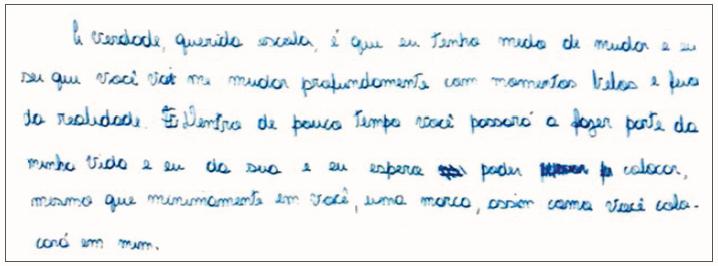 A verdade, querida escola, é que eu tenho medo de mudar e eu
sei que você vai me mudar profundamente com momentos belos e fora
da realidade. Dentro de pouco tempo você passará a fazer parte da
minha vida e eu da sua e eu espero poder colocar,
mesmo que minimamente em você, uma marca, assim como você colo-
cará em mim.